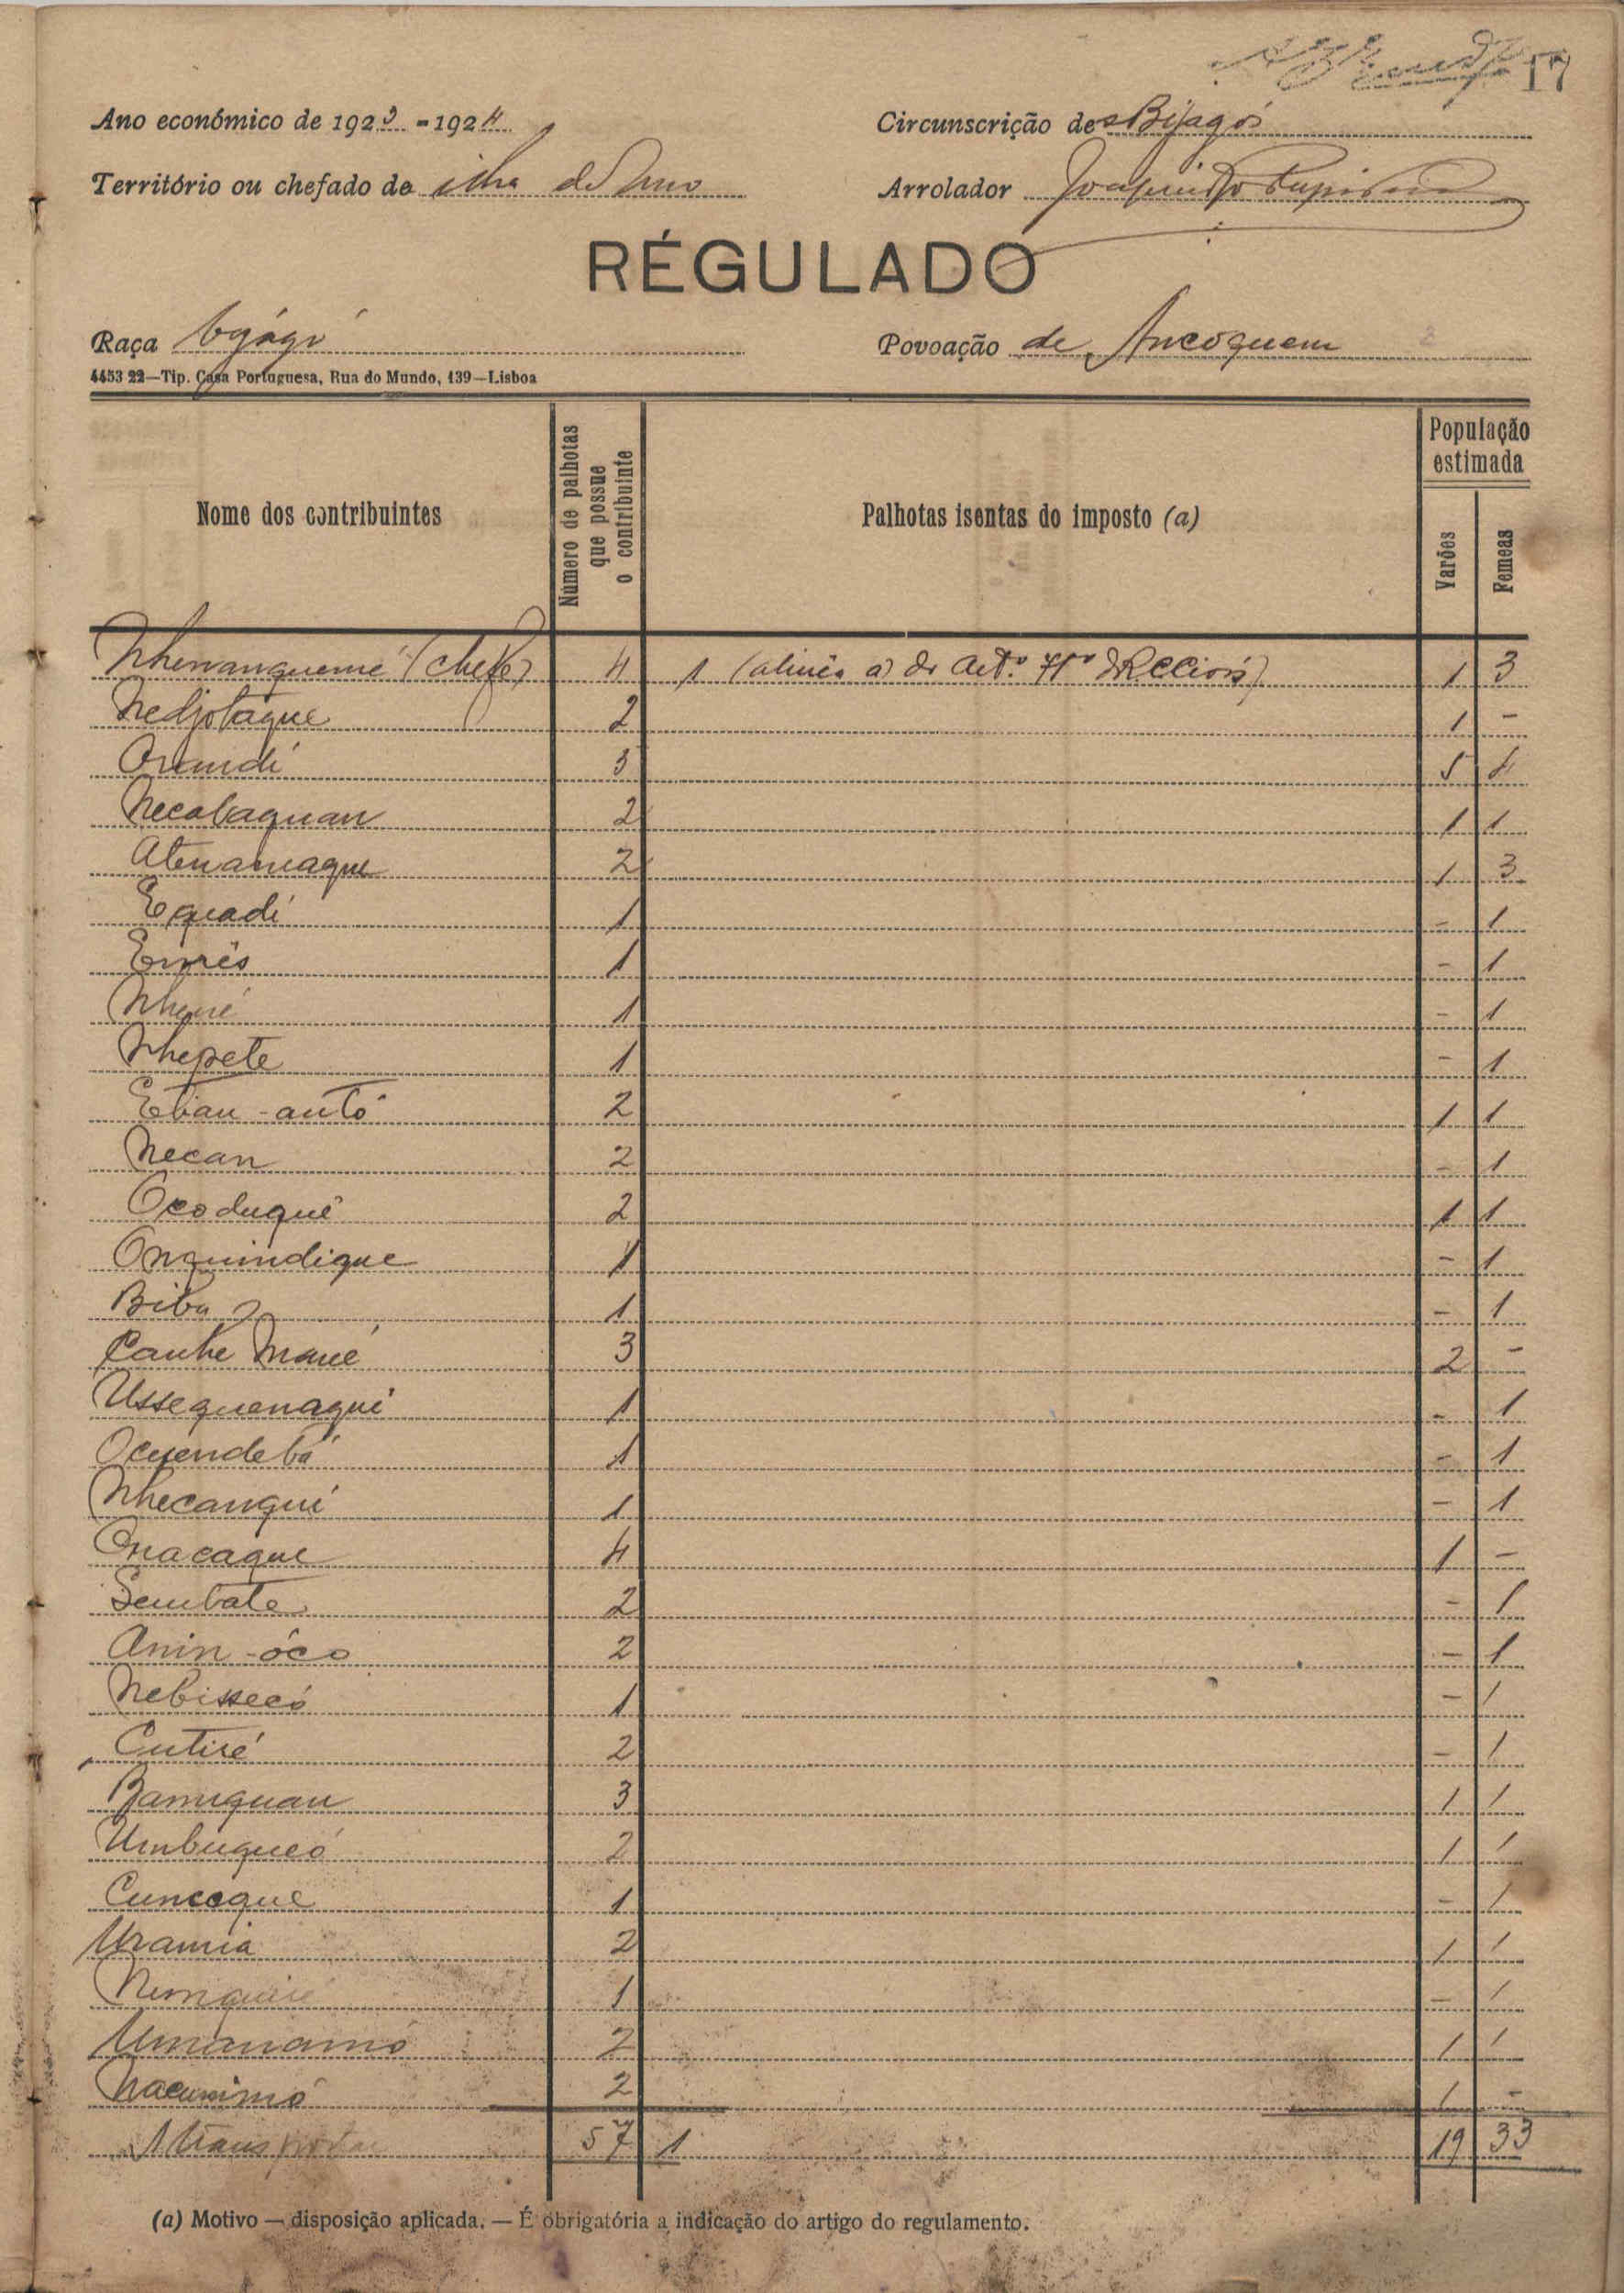 17
Ano económico de 1923-1924
Circunscrição de Bijagós
Território ou chefado de ilha de Uno
Arrolador
RÉGULADO
Raça bijágó
Povoação de Ancoquem
4453 22—Tip. Casa Portuguesa, Rua do Mundo, 139—Lisboa
Nome dos contribuintes
Número de palhotas que possue o contribuinte
Palhotas isentas do imposto (a)
População estimada
Varões
Femeas
(chefe) 4 1 (alinea a) do Art.º 1 3
Nedjobaque 2 1 -
3 5 4
Necobaquan 2 1 1
2 1 3
Equadi 1 - 1
1 - 1
1 - 1
Nhepete 1 - 1
Etian-antó 2 1 1
Necan 2 - 1
Ocoduqué 2 1 1
Onquindique 1 - 1
Biba 1 - 1
Canhe 3 2 -
Ussequenaqui 1 - 1
1 - 1
Nhecanqui 1 - 1
Onacaque 4 1 -
Sembate 2 - 1
Anin-óco 2 - 1
Nebissecó 1 - 1
Cutiré 2 - 1
Banuquan 3 1 1
Umbuqueó 2 1 1
Cuncoque 1 - 1
Urania 2 1 1
1 - 1
2 1 1
2 1 -
A transportar 57 1 19 33
(a) Motivo — disposição aplicada. — É obrigatória a indicação do artigo do regulamento.